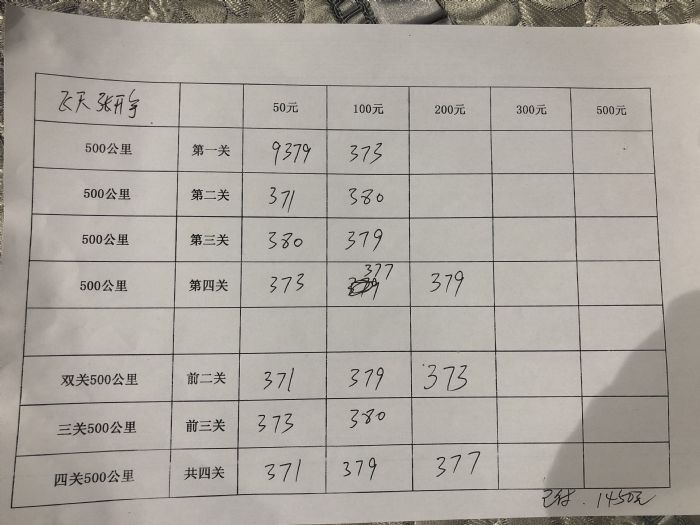 飞天 张开宇 50元 100元 200元 300元 500元
500公里 第一关 9379 373
500公里 第二关 371 380
500公里 第三关 380 379
500公里 第四关 373 377 379
双关500公里 前二关 371 379 373
三关500公里 前三关 373 380
四关500公里 共四关 371 379 377
已付.1450元